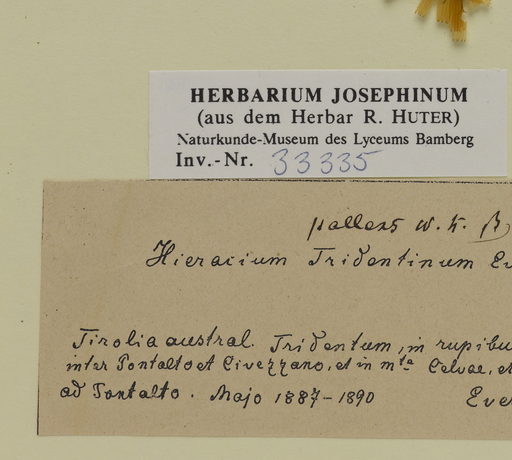 HERBARIUM JOSEPHINUM
(aus dem Herbar R. HUTER)
Naturkunde-Museum des Lyceums Bamberg
Inv.-Nr. 33335
pallens W. K. β
Hieracium Tridentinum Ev
Tirolia austral. Tridentum, in rupibu
inter Pontalto et Civezzano, et in mte Celvae, et
ad Pontalto. Majo 1887-1890 Eve